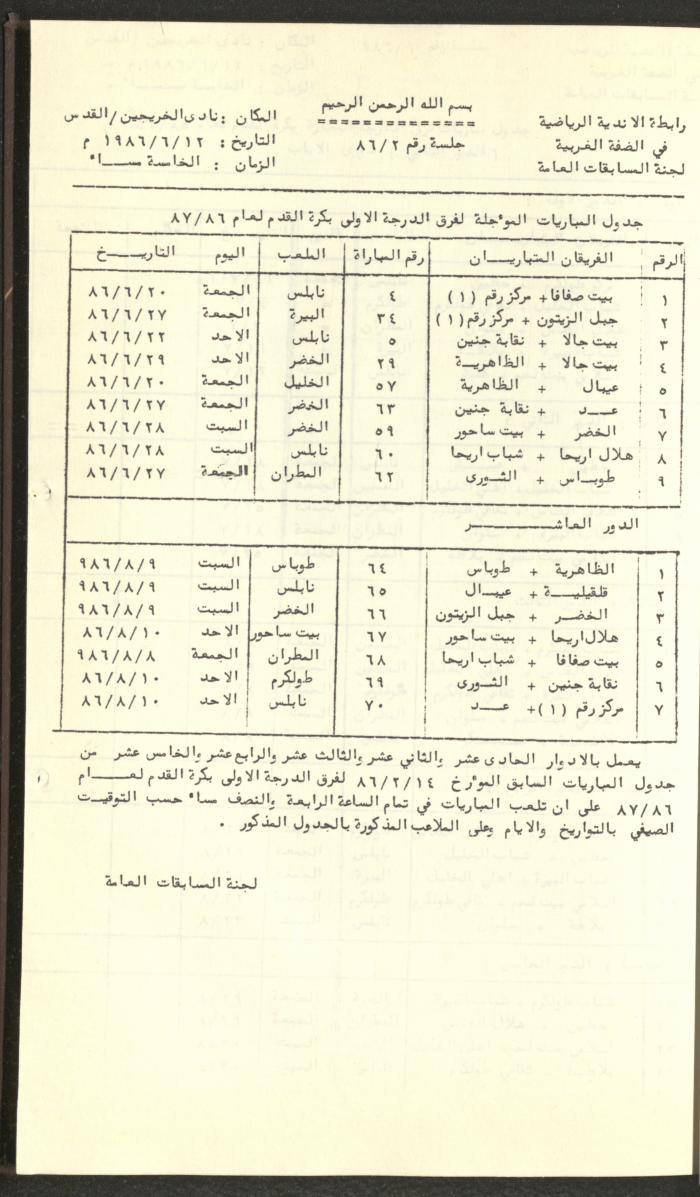 بسم الله الرحمن الرحيم
===============
رابطة الاندية الرياضية
في الضفة الغربية
لجنة المسابقات العامة
جلسة رقم ٨٦/٢
المكان : نادى الخريجين/القدس
التاريخ : ١٩٨٦/٦/١٢ م
الزمان : الخامسة مساء
جدول المباريات المؤجلة لفرق الدرجة الاولى بكرة القدم لعام ٨٧/٨٦
الرقم الفريقان المتباريان رقم المباراة الملعب اليوم التاريخ
١ بيت صفافا + مركز رقم (١) ٤ نابلس الجمعة ٨٦/٦/٢٠
٢ جبل الزيتون + مركز رقم (١) ٣٤ البيرة الجمعة ٨٦/٦/٢٧
٣ بيت جالا + نقابة جنين ٥ نابلس الاحد ٨٦/٦/٢٢
٤ بيت جالا + الظاهرية ٢٩ الخضر الاحد ٨٦/٦/٢٩
٥ عيبال + الظاهرية ٥٧ الخليل الجمعة ٨٦/٦/٢٠
٦ عــد + نقابة جنين ٦٣ الخضر الجمعة ٨٦/٦/٢٧
٧ الخضر + بيت ساحور ٥٩ الخضر السبت ٨٦/٦/٢٨
٨ هلال اريحا + شباب اريحا ٦٠ نابلس السبت ٨٦/٦/٢٨
٩ طوباس + الثورى ٦٢ المطران الجمعة ٨٦/٦/٢٧
الدور العاشر
١ الظاهرية + طوباس ٦٤ طوباس السبت ٩٨٦/٨/٩
٢ قلقيلية + عيبال ٦٥ نابلس السبت ٩٨٦/٨/٩
٣ الخضر + جبل الزيتون ٦٦ الخضر السبت ٩٨٦/٨/٩
٤ هلال اريحا + بيت ساحور ٦٧ بيت ساحور الاحد ٨٦/٨/١٠
٥ بيت صفافا + شباب اريحا ٦٨ المطران الجمعة ٩٨٦/٨/٨
٦ نقابة جنين + الثورى ٦٩ طولكرم الاحد ٨٦/٨/١٠
٧ مركز رقم (١) + عــد ٧٠ نابلس الاحد ٨٦/٨/١٠
يعمل بالادوار الحادى عشر والثاني عشر والثالث عشر والرابع عشر والخامس عشر من
جدول المباريات السابق المؤرخ ٨٦/٢/١٤ لفرق الدرجة الاولى بكرة القدم لعــام
٨٧/٨٦ على ان تلعب المباريات في تمام الساعة الرابعة والنصف مساء حسب التوقيت
الصيفي بالتواريخ والايام وعلى الملاعب المذكورة بالجدول المذكور .
لجنة المسابقات العامة